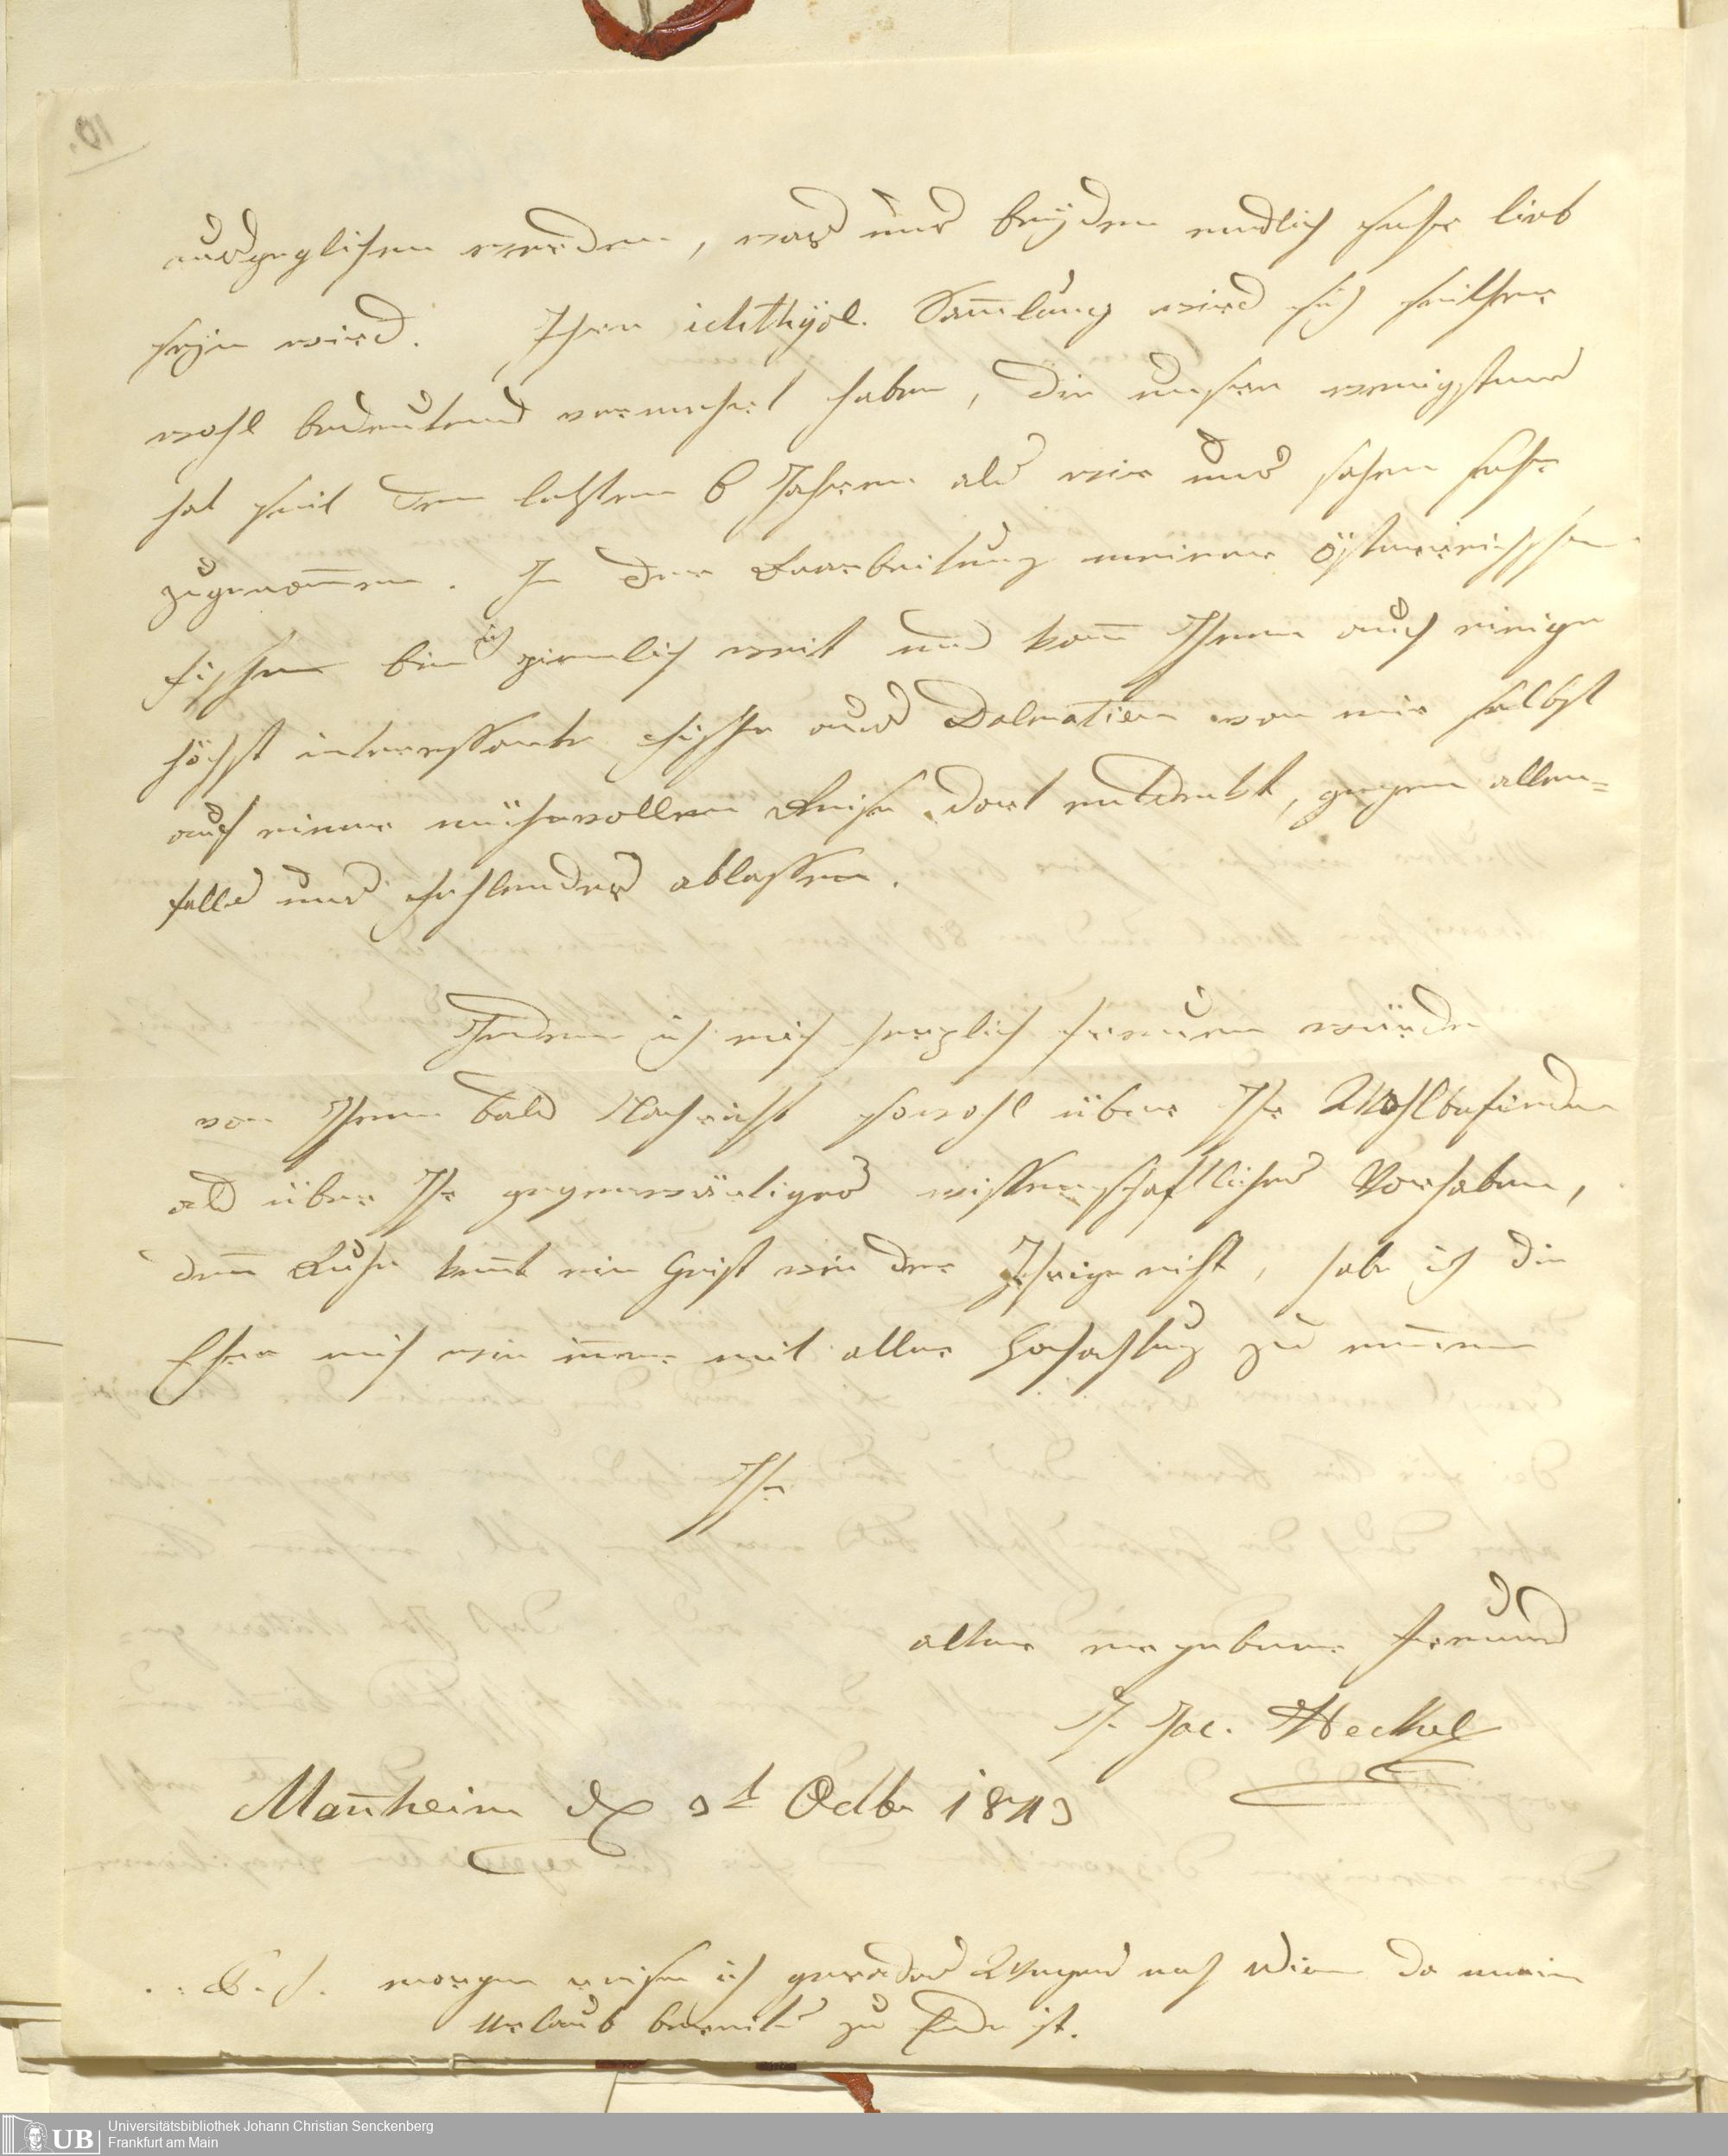 ausgeglichen werden, was uns beÿden endlich sehr lieb
seÿn wird. Ihre ichthÿol. Sam̅lung wird sich seither
wohl bedeutend vermehrt haben, die unsere wenigstens
hat seit den letzten 6 Jahren als wir uns sahen sehr
zugenom̅en. In der Bearbeitung meiner österreichischen
Fische bin ich ziemlich weit und kan̅ Ihnen auch einige
höchst interessante Fische aus Dalmatien von mir selbst
auf einer mühevollen Reise dort entdeckt, gegen allen=
falls uns fehlendes ablassen.
Indem ich mich herzlich freuen würde
von Ihnen bald Nachricht sowohl über Ihr Wohlbefinden
als über Ihr gegenwärtiges wissenschaftliches Vorhaben,
den̅ Ruhe ken̅t ein Geist wie der Ihrige nicht, habe ich die
Ehre mich wie im̅er mit aller Hochachtug zu nen̅en
Ihr
alter ergebener Freund
J. Jac. Heckel
Man̅heim d 3t Octbr 1843
P. S. morgen reise ich geraden Weges nach Wien da mein
Urlaub bereits zu Ende ist.
10.
UB
Universitätsbibliothek Johann Christian Senckenberg
Frankfurt am Main